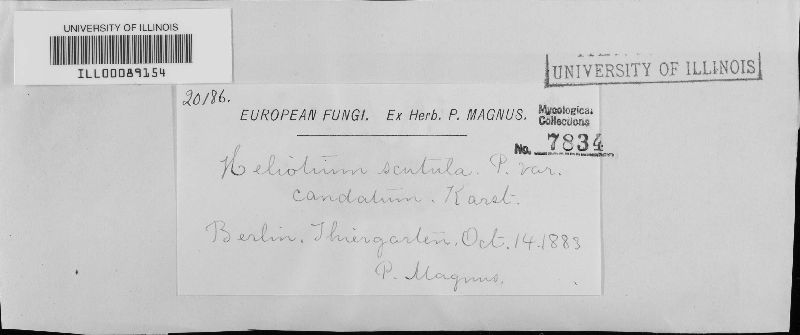 UNIVERSITY OF ILLINOIS
ILL00089154
UNIVERSITY OF ILLINOIS
20186.
EUROPEAN FUNGI. Ex Herb. P. MAGNUS.
Mycological
Collections
No. 7834
Heliotium scutula. P. var.
candatum. Karst.
Berlin, Thiergarten, Oct. 14. 1883
P. Magnus.